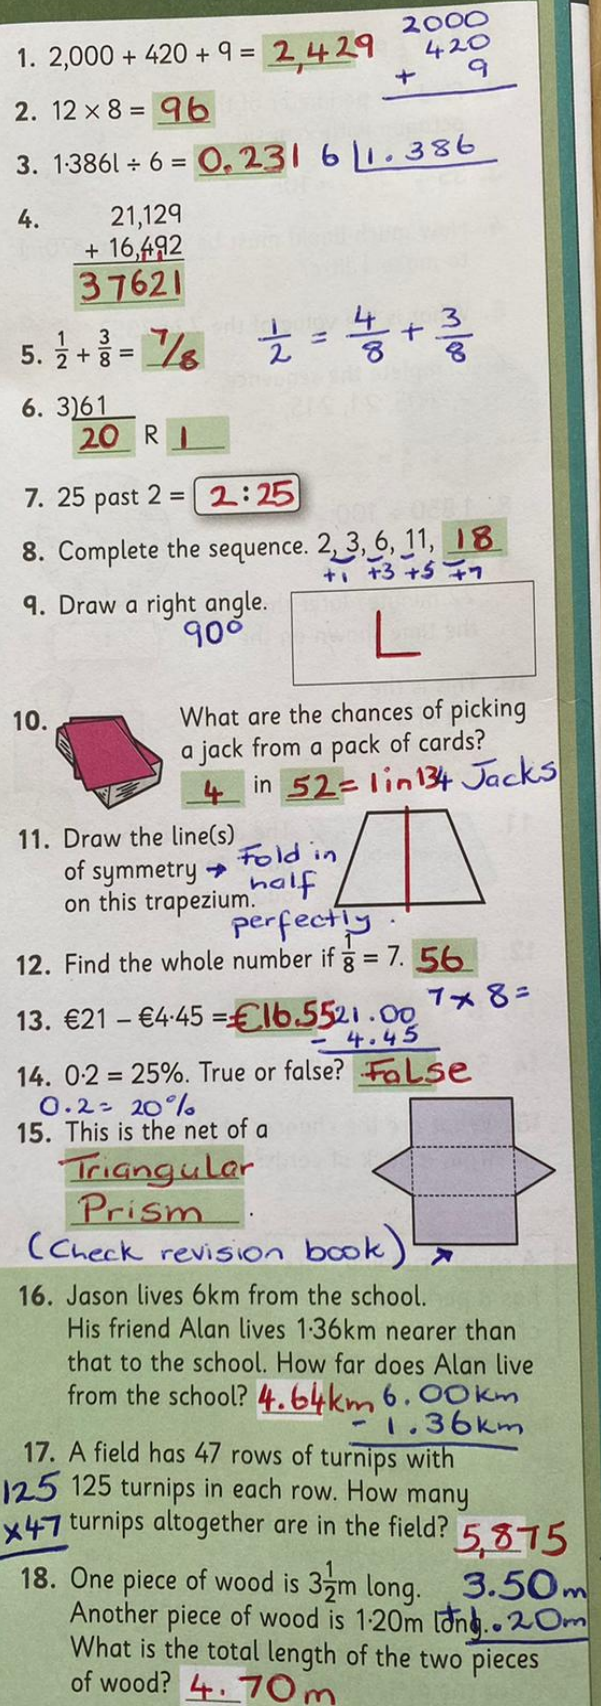 1. 2,000 + 420 + 9 = 2,429
2000
420
+ 9
2. 12 × 8 = 96
3. 1·386l ÷ 6 = 0.231 6 1.386
4. 21,129
+ 16,492
37621
5. 1/2 + 3/8 = 7/8 1/2 = 4/8 + 3/8
6. 3)61
20 R 1
7. 25 past 2 = 2:25
8. Complete the sequence. 2, 3, 6, 11, 18
+1 +3 +5 +7
9. Draw a right angle.
90°
10. What are the chances of picking
a jack from a pack of cards?
4 in 52 = 1 in 13 4 Jacks
11. Draw the line(s)
of symmetry → Fold in
half
on this trapezium.
perfectly.
12. Find the whole number if 1/8 = 7. 56
7 × 8 =
13. €21 – €4·45 = €16.55 21.00
- 4.45
14. 0·2 = 25%. True or false? False
0.2 = 20%
15. This is the net of a
Triangular
Prism.
(Check revision book)
16. Jason lives 6km from the school.
His friend Alan lives 1·36km nearer than
that to the school. How far does Alan live
from the school? 4.64km 6.00km
- 1.36km
17. A field has 47 rows of turnips with
125 turnips in each row. How many
turnips altogether are in the field? 5,875
125
×47
18. One piece of wood is 3 1/2m long. 3.50m
Another piece of wood is 1·20m long. + 1.20m
What is the total length of the two pieces
of wood? 4.70m